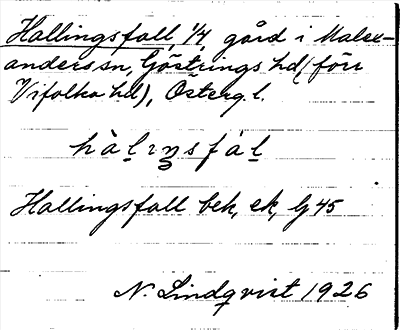 Hallingsfall 1/4, gård i Malex-
anders sn, Göstrings hd (förr
Vifolka hd), Österg. l.
hàlıŋsfàl
Hallingsfall bek, ek, Lg 45
N. Lindqvist 1926